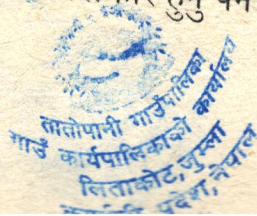 तातोपानी गाउँपालिका
गाउँ कार्यपालिकाको कार्यालय
लिताकोट, जुम्ला
प्रदेश, नेपाल